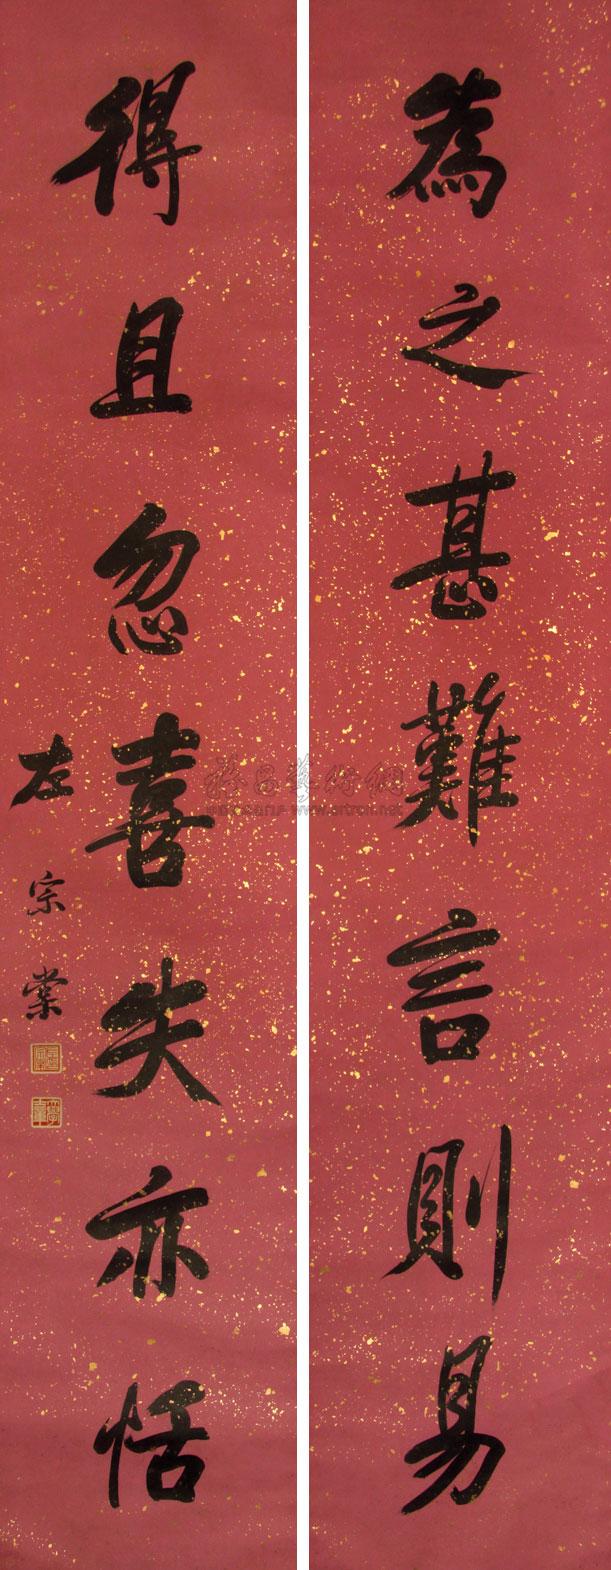 為之甚難言則易
得且忽喜失亦恬
左宗棠
www.artron.net